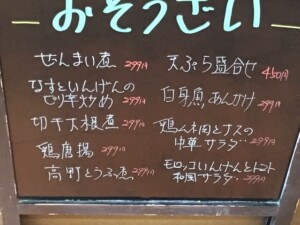 おそうざい
ぜんまい煮 299円
なすといんげんの
ピリ辛炒め 299円
切干大根煮 299円
鶏唐揚 299円
高野とうふ煮 299円
天ぷら盛合せ 450円
白身魚あんかけ 299円
鶏ムネ肉とナスの
中華サラダ 299円
モロッコいんげんとトマト
和風サラダ 299円